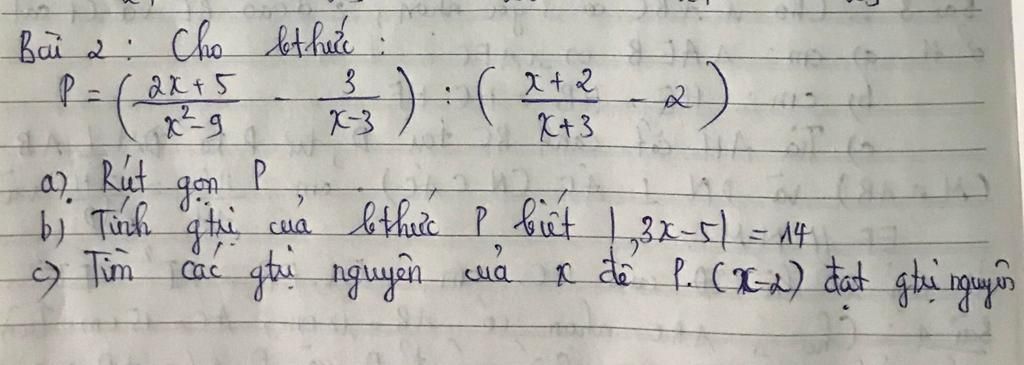 Bài 2 : Cho bthức :
P = ( (2x+5)/(x²-9) - 3/(x-3) ) : ( (x+2)/(x+3) - 2 )
a) Rút gọn P
b) Tính gtrị của bthức P biết |3x-5| = 14
c) Tìm các gtrị nguyên của x để P.(x-2) đạt gtrị nguyên